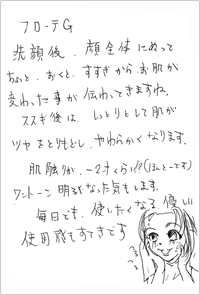 フローテG
洗顔後、顔全体にぬって
ちょっと、おくと、すすぎから、お肌が
変わった事が伝わってきますね。
ススギ後は、しっとりとして肌が
ツヤをとりもどし、やわらかくなります。
肌触りが、-2才くらい!?(ほんとーです)
ワントーン明るくなった気もします。
毎日でも、使いたくなる優しい
使用感もすてきです
つるつる